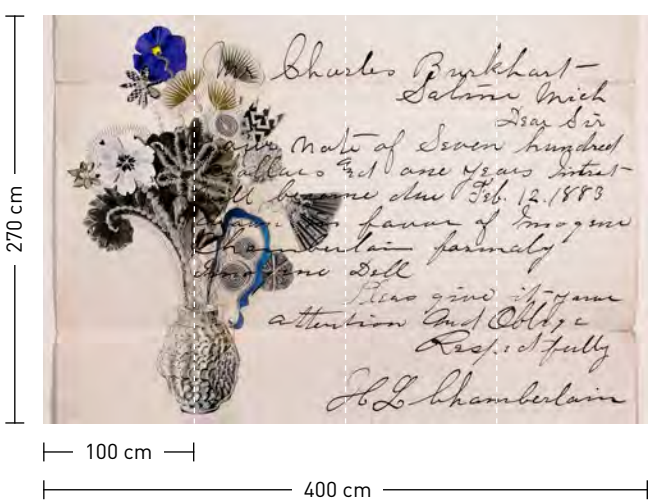 Mr Charles Burkhart
Saline Mich
Dear Sir
Your Note of Seven hundred
Dollars and one years Intrest
will become due Feb. 12. 1883
favor of Imogene
Chamberlain formaly
Imogene Dell
Pleas give it your
attention And Oblige
Respectfully
H L Chamberlain
270 cm
100 cm
400 cm